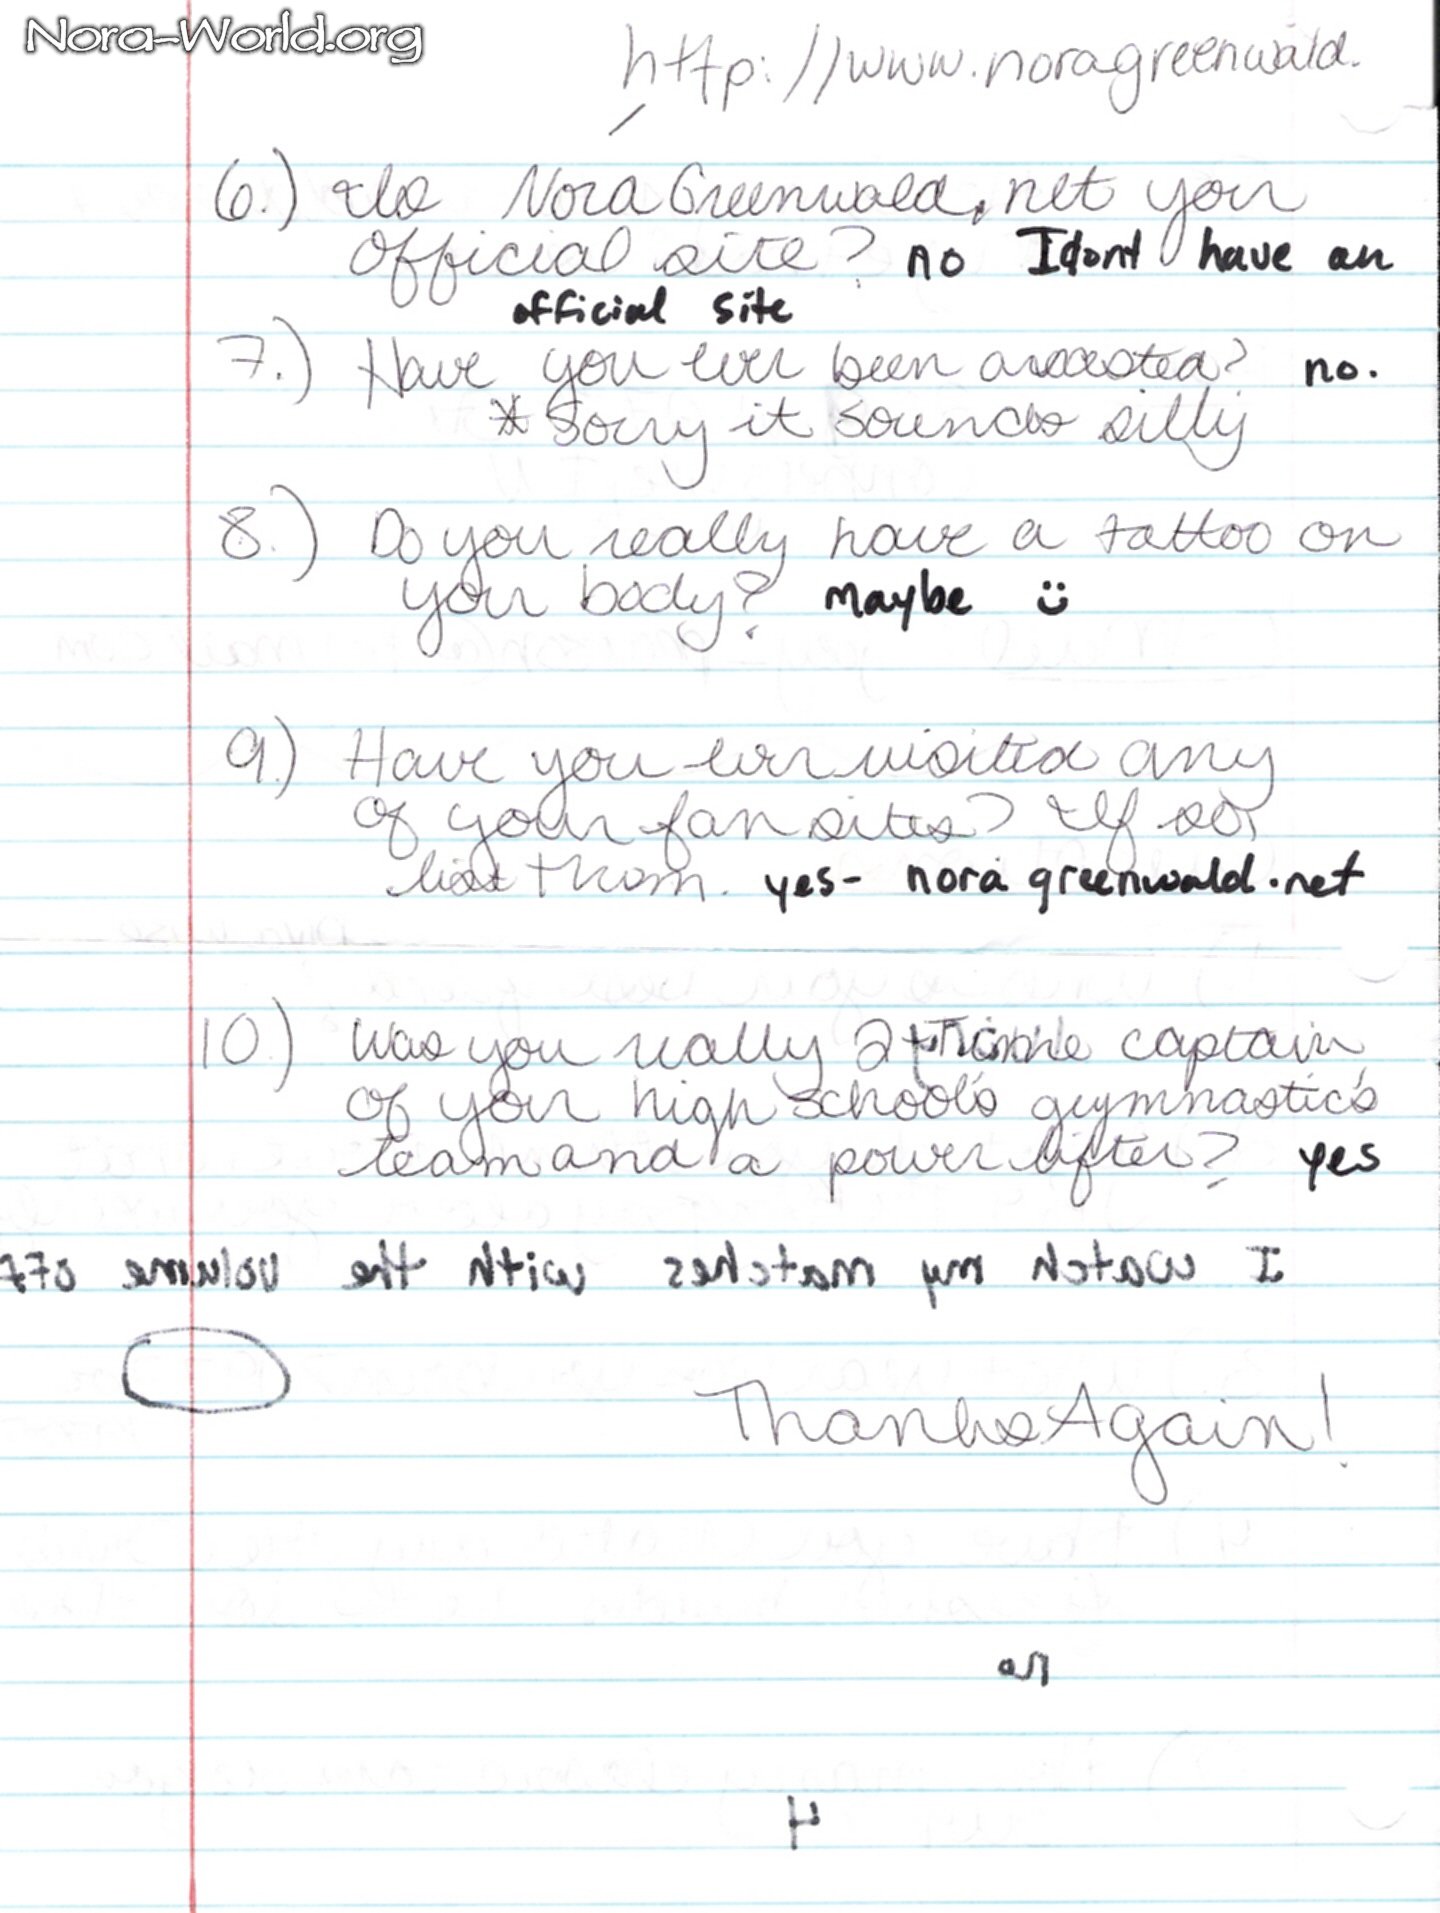 Nora-World.org
http://www.noragreenwald.
6.) Is Nora Greenwald.net your
official site? no I dont have an
official site
7.) Have you ever been arrested? no.
* Sorry it sounds silly
8.) Do you really have a tattoo on
your body? maybe
9.) Have you ever visited any
of your fan sites? If so,
list them. yes- nora greenwald.net
10.) Was you really 2 time captain
of your high school's gymnastics
team and a power lifter? yes
I watch my matches with the volume off
Thanks Again!
no
4